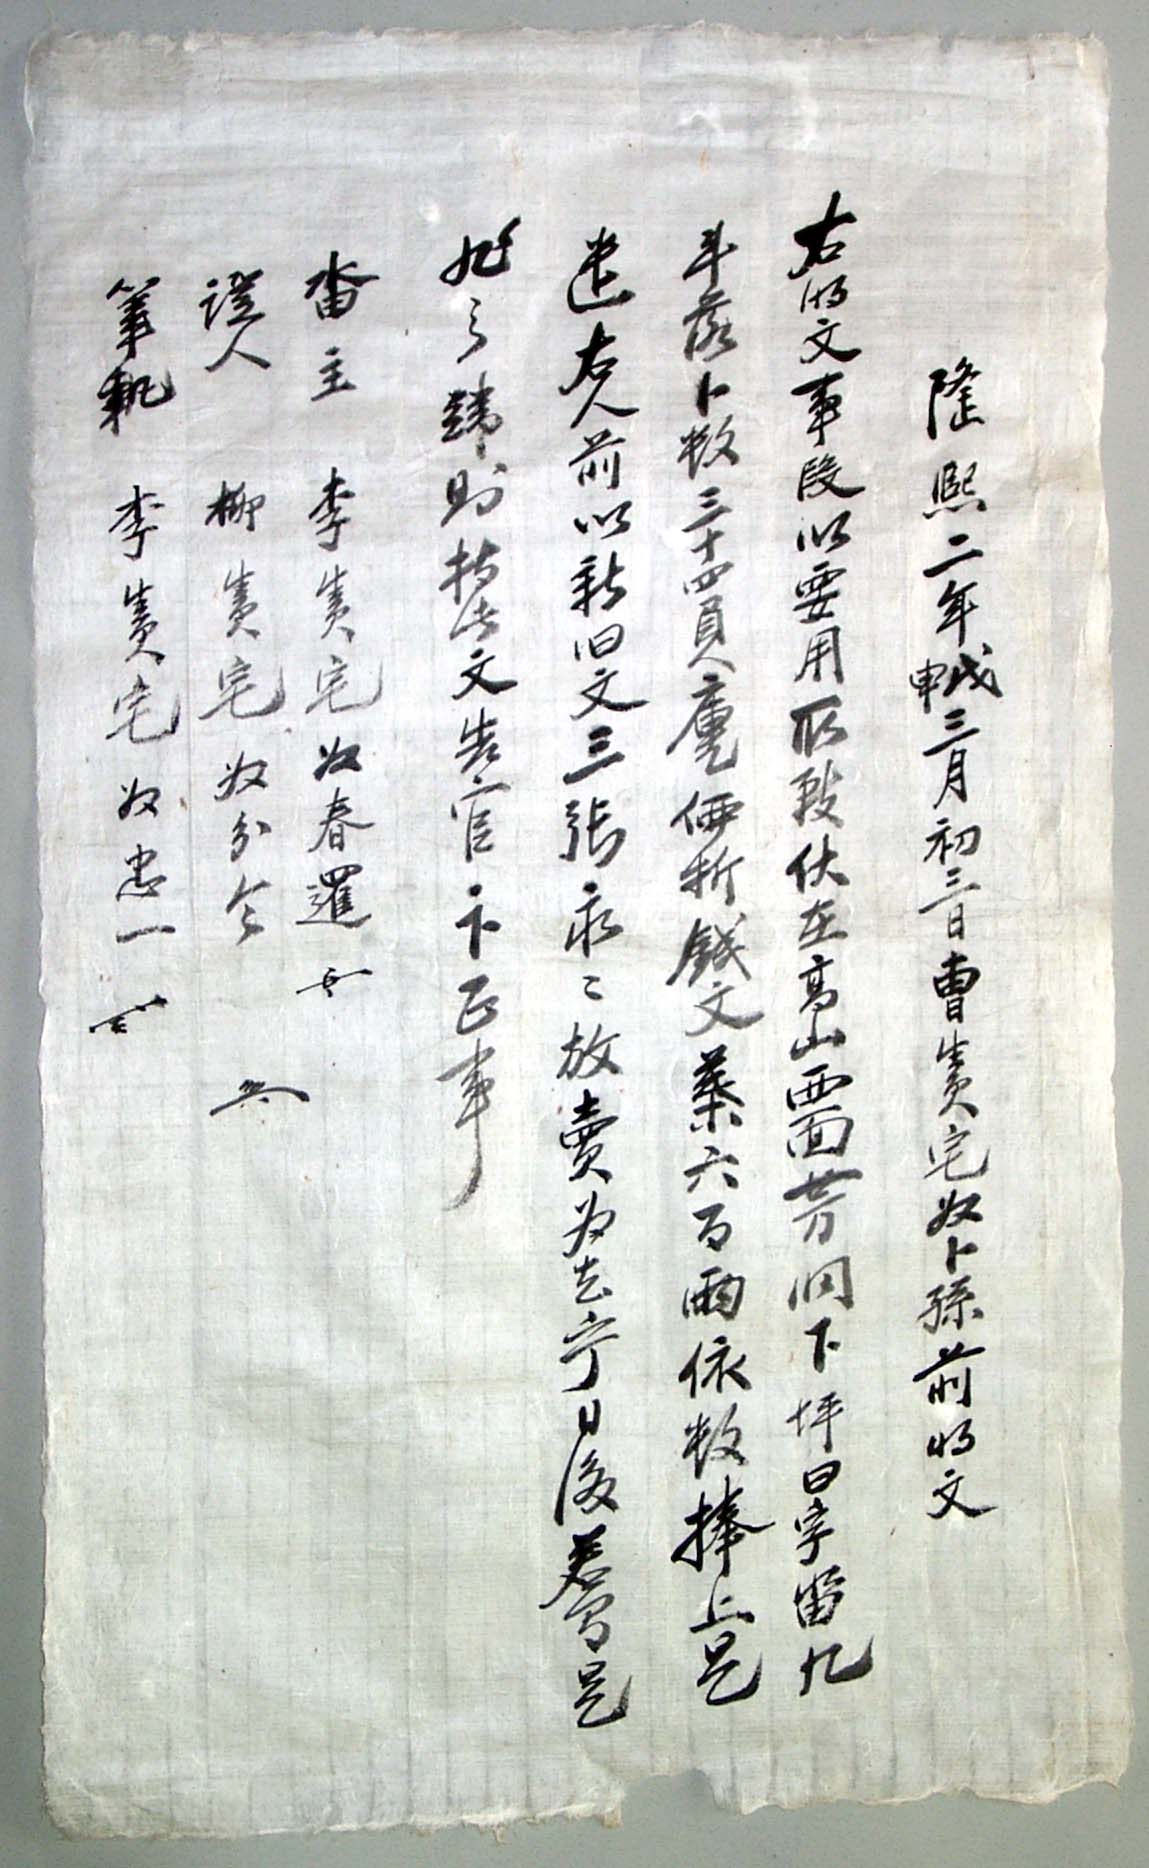 隆熙二年戊申三月初三日曺生員宅奴卜孫前明文
右明文事段以要用所致伏在高山西面芳洞下坪日字畓九
斗落卜數三十四員㢱價折錢文葉六百兩依數捧上是
遣右人前以新旧文三張永〻放賣爲去乎日後若有是
非之端則持此文告官卞正事
畓主 李生員宅奴春暹
證人 柳生員宅奴分金
筆執 李生員宅奴忠一